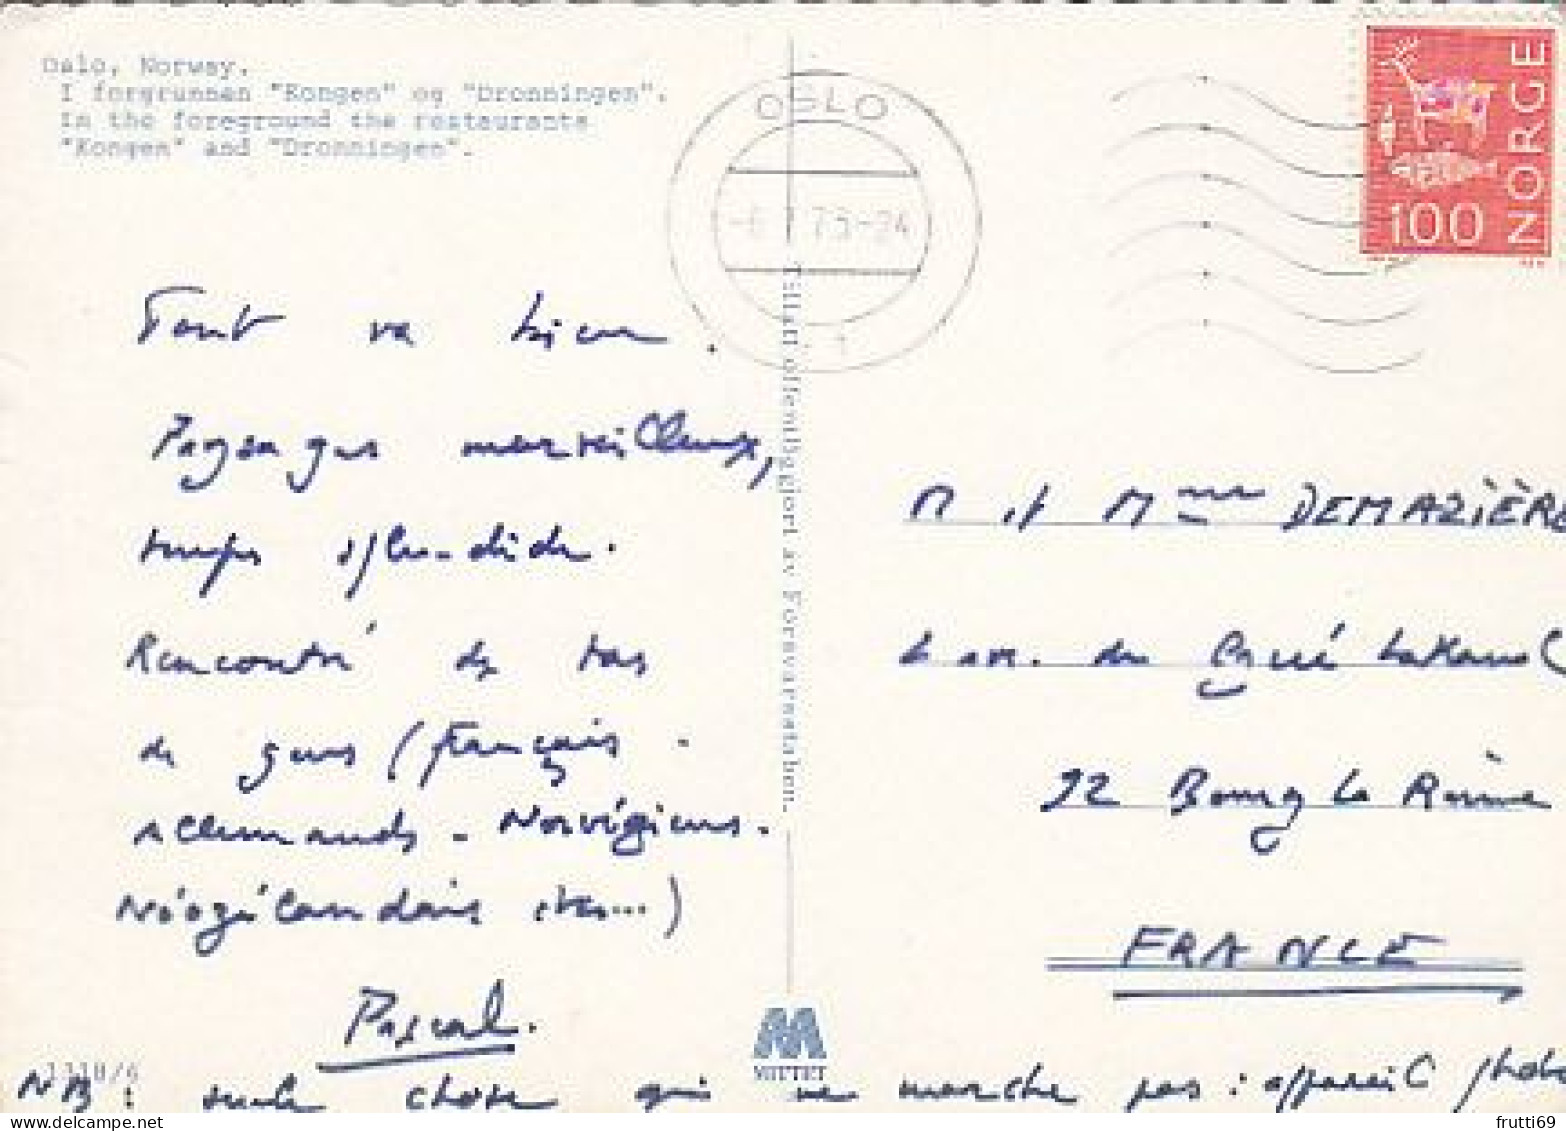 Oslo, Norway.
I forgrunnen "Kongen" og "Dronningen".
In the foreground the restaurants
"Kongen" and "Dronningen".
OSLO
-6 7 75-24
1
NORGE
100
Tout va bien.
Paysages merveilleux,
temps splendide.
Rencontré des tas
de gens (français -
Allemands - Norvégiens -
Néozélandais etc...)
Pascal.
NB : seule chose qui ne marche pas : appareil photo
Tillatt offentliggjort av Forsvarsstaben.
M et Mme DEMAZIÈRE
av. du Lakanal
92 Bourg la Reine
FRANCE
MITTET
1318/6
frutti69